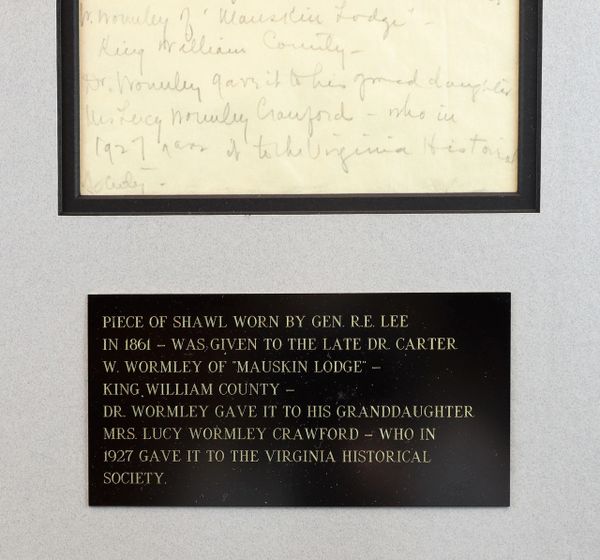 W. Wormley of "Mauskin Lodge" -
King William County -
Dr. Wormley gave it to his grand daughter
Mrs Lucy Wormley Crawford - who in
1927 gave it to the Virginia Historical
Society -
PIECE OF SHAWL WORN BY GEN. R.E. LEE
IN 1861 – WAS GIVEN TO THE LATE DR. CARTER
W. WORMLEY OF "MAUSKIN LODGE" –
KING WILLIAM COUNTY –
DR. WORMLEY GAVE IT TO HIS GRANDDAUGHTER
MRS. LUCY WORMLEY CRAWFORD – WHO IN
1927 GAVE IT TO THE VIRGINIA HISTORICAL
SOCIETY.